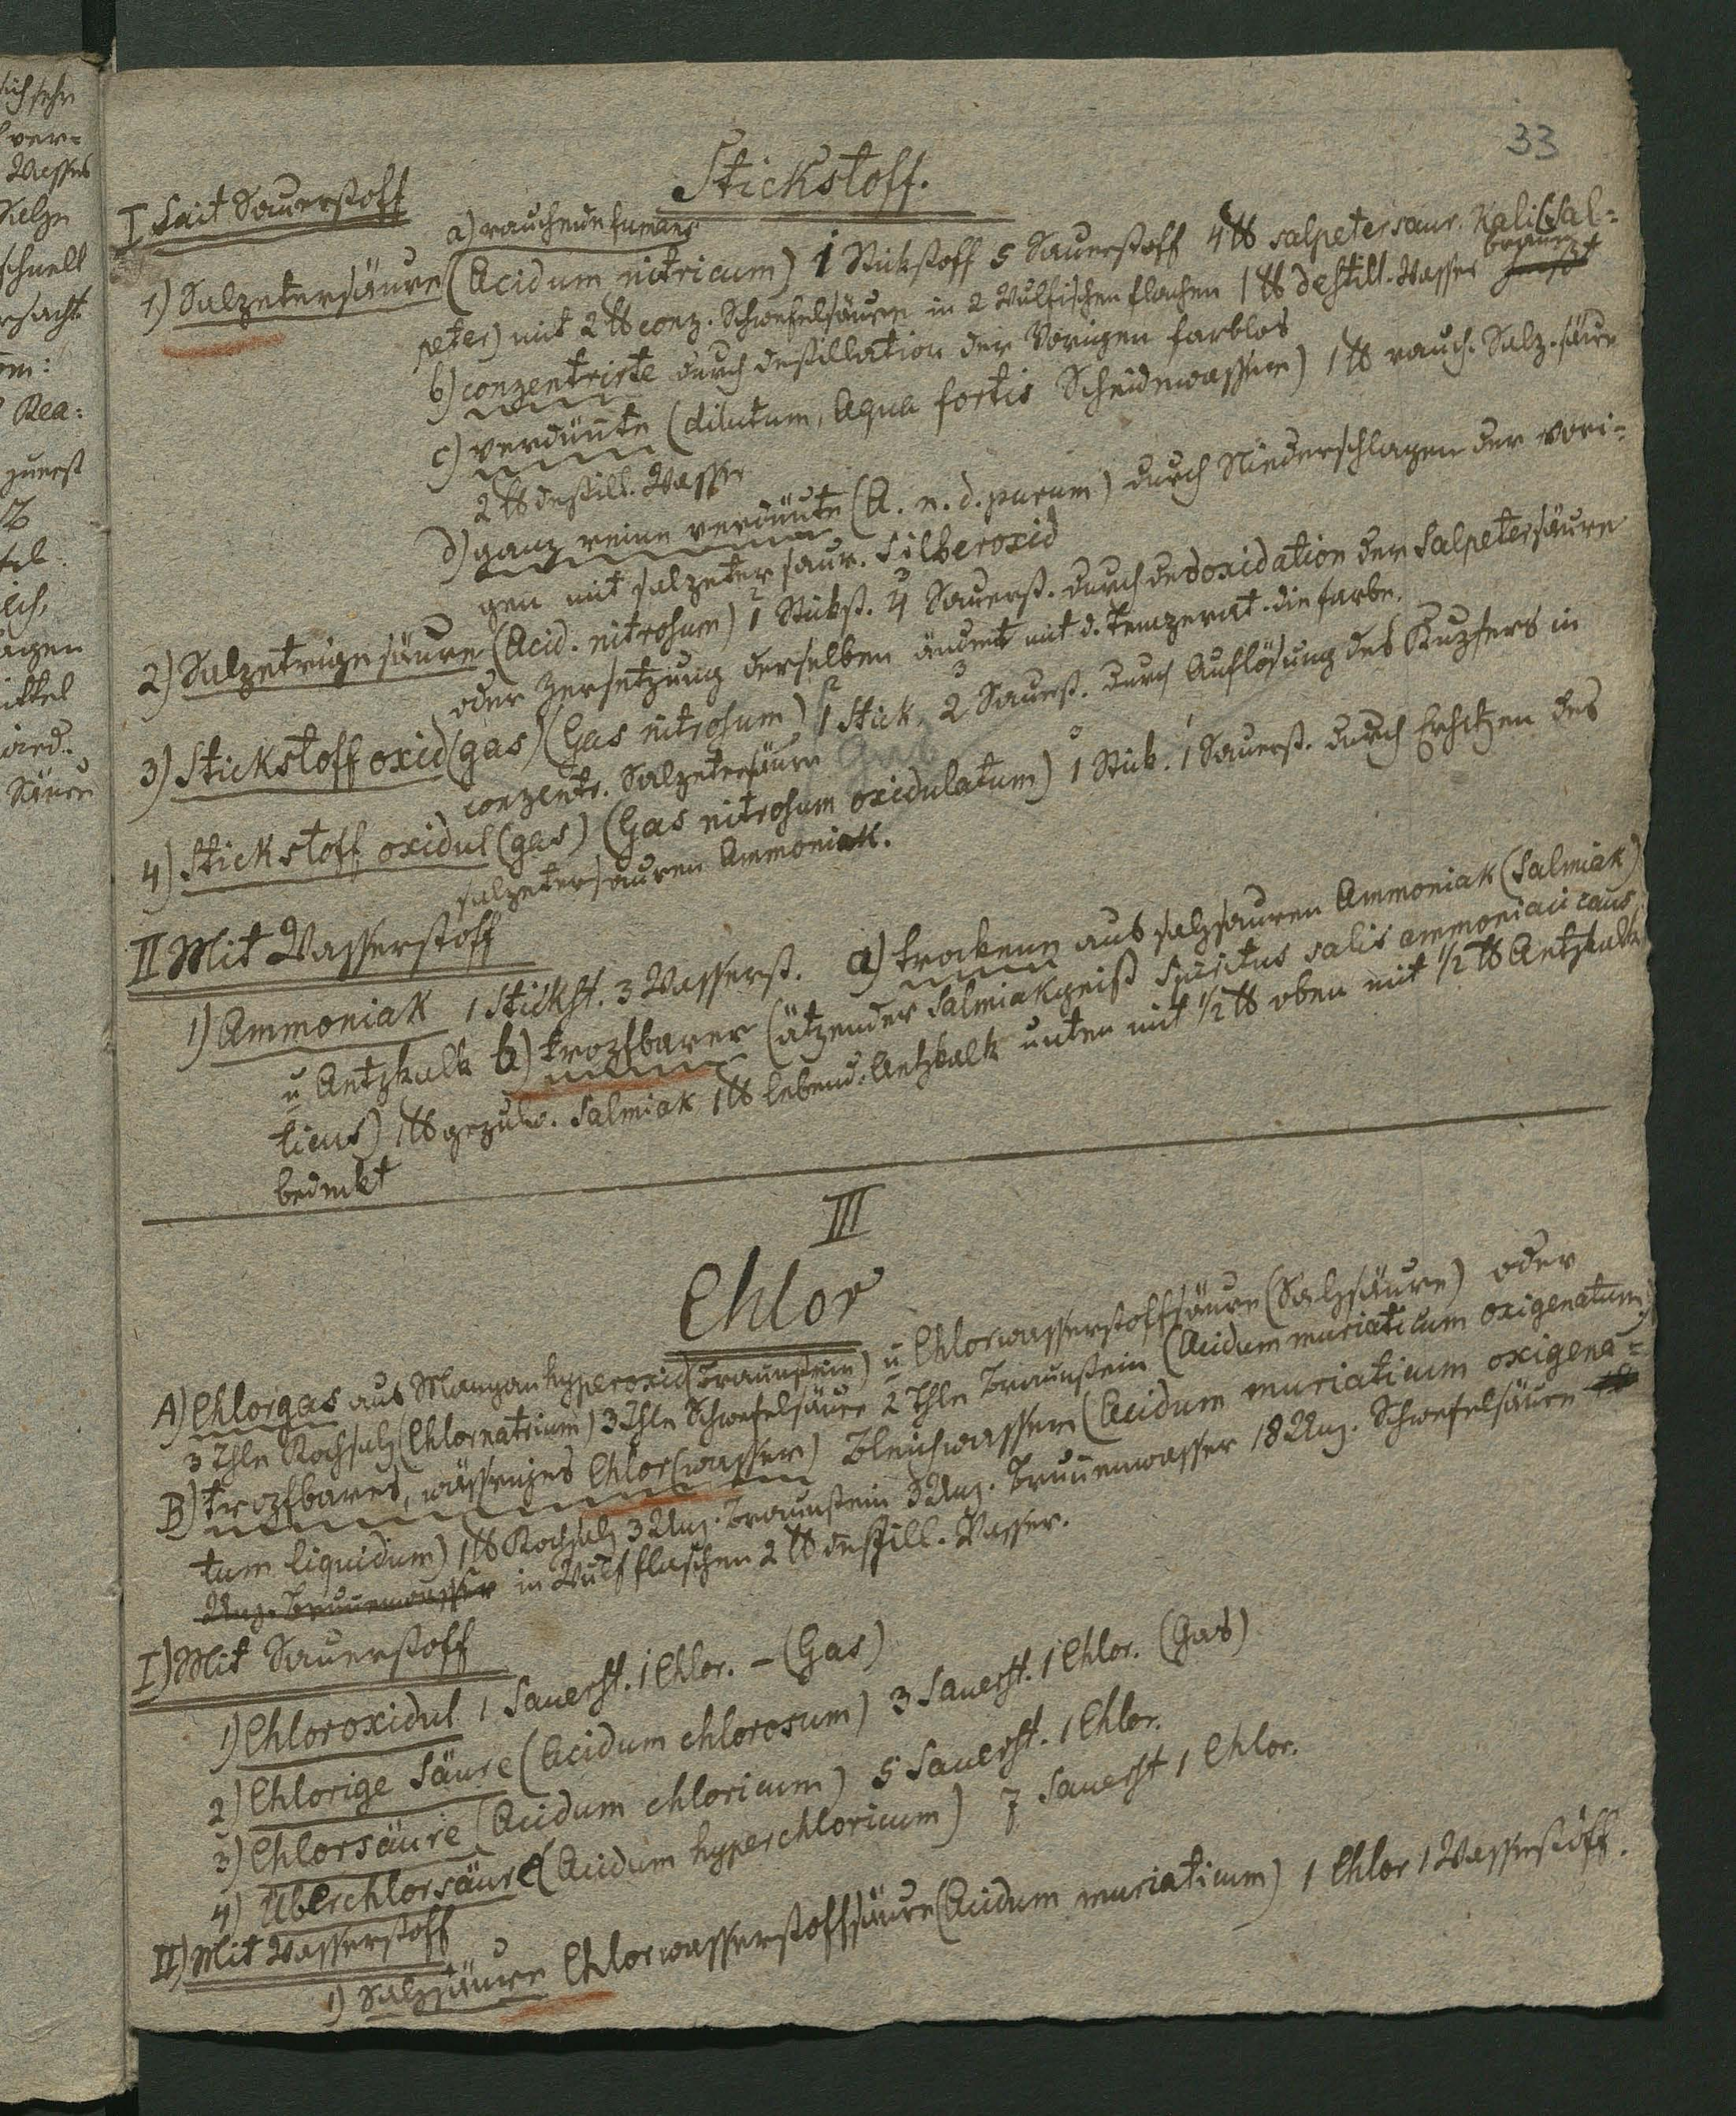 33
Stickstoff.
I Mit Sauerstoff
a) rauchende fumans
1) Salpetersäure (Acidum nitricum) 1 Stickstoff 5 Sauerstoff 4 ℔ salpetersaur. Kali (Sal-
peter) mit 2 ℔ conz. Schwefelsäure in 2 Wulfischen flachen 1 ℔ destill. Wasser braun
b) conzentrirte durch destillation der Vorigen farblos
c) verdünnte (dilutum, Aqua fortis Scheidewasser) 1 ℔ rauch. Salp. säure
2 ℔ destill. Wasser
d) ganz reine verdünte (A. n. d. purum) durch Niederschlagen der vori-
gen mit salpetersaur. Silberoxid
2) Salpetrigesäure (Acid. nitrosum) 1 Stickst. 4 Sauerst. durch desoxidation der Salpetersäure
oder Zersetzung derselben ändert mit d. Temperat. die farbe.
3) Stickstoff oxid (gas) (Gas nitrosum) 1 Stick. 2 Sauerst. durch Auflösung des Kupfers in
conzentr. Salpetersäure
4) Stickstoff oxidul (gas) (Gas nitrosum oxidulatum) 1 Stick. 1 Sauerst. durch Erhitzen des
salpetersauren Ammoniak.
II Mit Wasserstoff
1) Ammoniak 1 Stickst. 3 Wasserst. a) trockene aus salzsauren Ammoniak (Salmiak)
u Aetzkalk b) tropfbarer (ätzender Salmiakgeist Spiritus salis ammoniaci caus
ticus) 1 ℔ gepulv. Salmiak 1 ℔ lebend. Aetzkalk unten mit 1/2 ℔ oben mit 1/2 ℔ Aetzkalk
bedeckt
III
Chlor
A) Chlorgas aus Manganhyperoxid (Braunstein) u Chlorwasserstoffsäure (Salzsäure) oder
3 Thle Kochsalz (Chlornatrium) 3 Thle Schwefelsäure 2 Thle Braunstein (Acidum muriaticum oxigenatum)
B) tropfbares, wässeriges Chlor (wasser) Bleichwasser (Acidum muriaticum oxigena-
tum liquidum) 1 ℔ Kochsalz 3 Unz. Braunstein 3 Unz. Brunnenwasser 18 Unz. Schwefelsäure
Unz. Brunnenwasser in Wulf flaschen 2 ℔ destill. Wasser.
I) Mit Sauerstoff
1) Chloroxidul 1 Sauerst. 1 Chlor. – (Gas)
2) Chlorige Säure (Acidum chlorosum) 3 Sauerst. 1 Chlor. (Gas)
3) Chlorsäure (Acidum chloricum) 5 Sauerst. 1 Chlor.
4) Überchlorsäure (Acidum hyperchloricum) 7 Sauerst 1 Chlor.
II) Mit Wasserstoff
1) Salzsäure Chlorwasserstoffsäure (Acidum muriaticum) 1 Chlor 1 Wasserstoff.